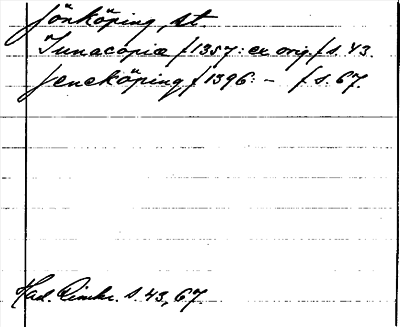 Jönköping, st.
Junacopia f 1357: ex orig. f s. 43.
Jeneköping f 1396: - f s. 67.
Had. Dimbr. s. 43, 67.